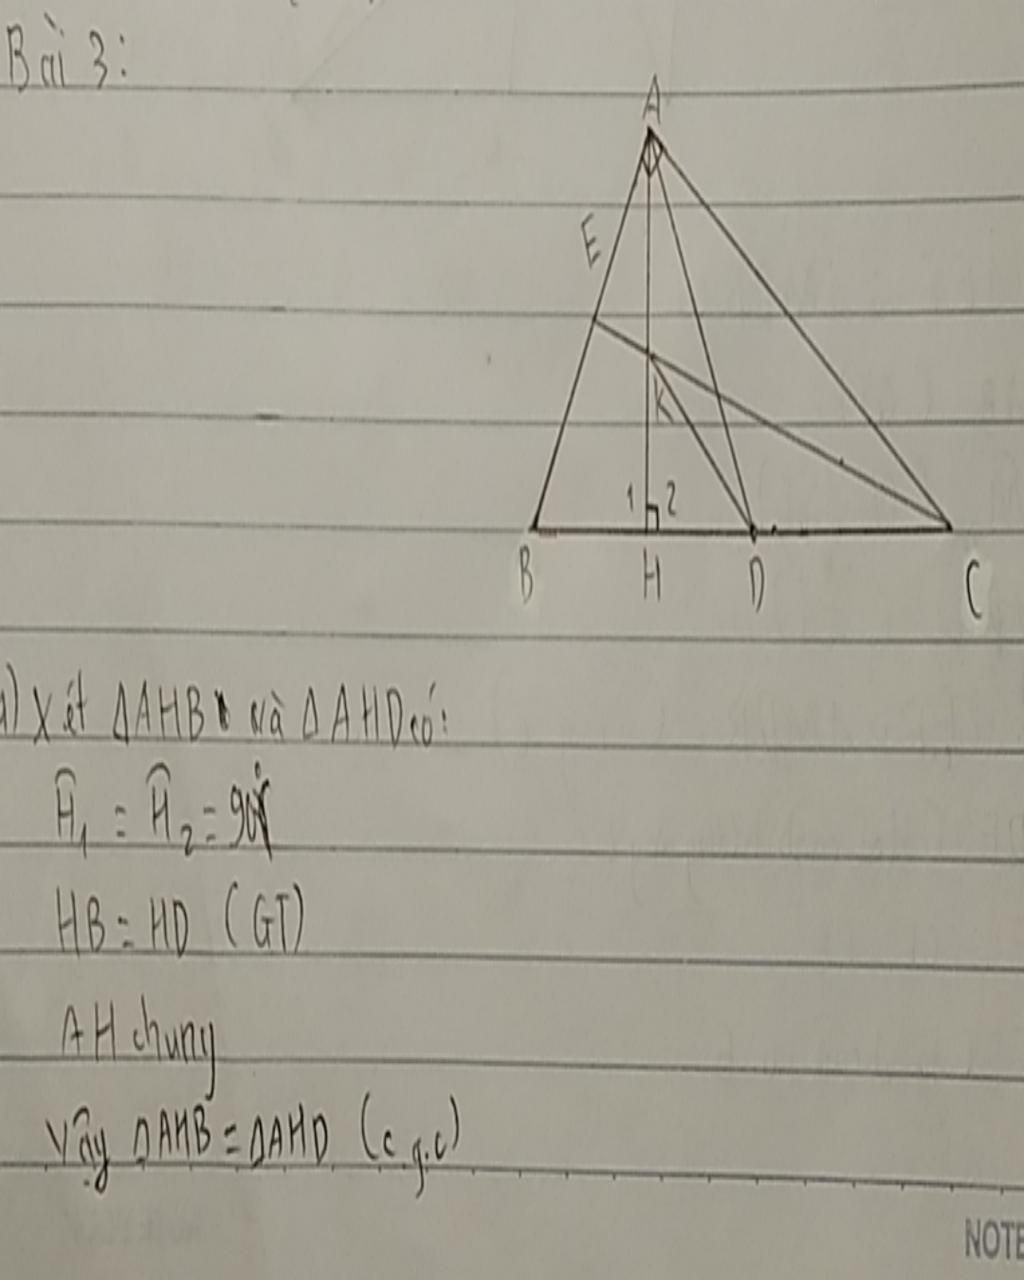 Bài 3:
A
E
K
1 2
B H D C
a) Xét ΔAHB và ΔAHD có:
Ĥ₁ = Ĥ₂ = 90°
HB = HD (GT)
AH chung
Vậy ΔAHB = ΔAHD (c.g.c)
NOTE